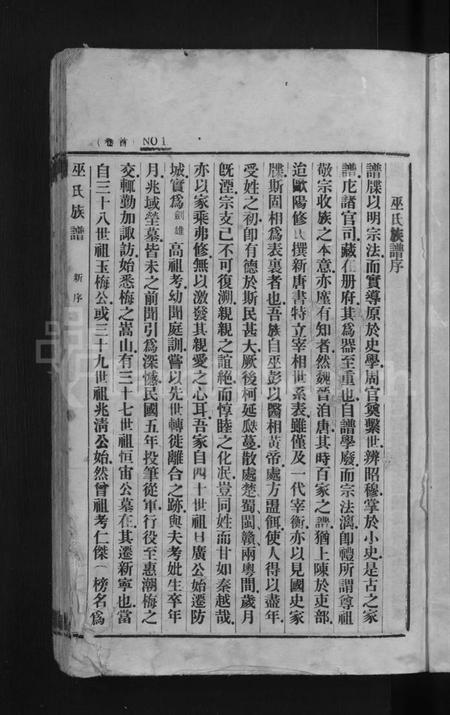 NO 1 （首卷）
巫氏族譜序
譜牒以明宗法而實導原於史學周官奠繫世辨昭穆掌於小史是古之家
譜庀諸官司藏在册府其爲器至重也自譜學廢而宗法漓卽禮所謂尊祖
敬宗收族之本意亦廑有知者然魏晉洎唐其時百家之譜猶上陳於吏部
迨歐陽修氏撰新唐書特立宰相世系表雖僅及一代宰衡亦以見國史家
牒斯固相爲表裏者也吾族自巫彭以醫相黃帝處方盟餌使人得以盡年
受姓之初卽有德於斯民甚大厥後柯延瓞蔓散處楚蜀閩贛兩粤間歲月
旣湮宗支已不可復溯親親之誼絶而惇睦之化泯豈同姓而甘如秦越哉
亦以家乘弗修無以激發其親愛之心耳吾家自四十世祖日廣公始遷防
城實爲劍雄高祖考幼聞庭訓嘗以先世轉徙離合之跡與夫考妣生卒年
月兆域塋墓皆未之前聞引爲深憾民國五年投筆從軍行役至惠潮梅之
交輒勤加諏訪始悉梅之嵩山有三十七世祖恒宙公墓在其遷新寧也當
自三十八世祖玉梅公或三十九世祖兆清公始然曾祖考仁傑（榜名爲
巫氏族譜 新序